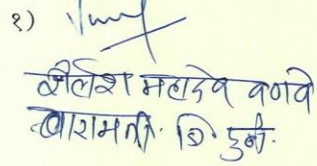 १)
शैलेश महादेव वणवे
बारामती. जि. पुणे.